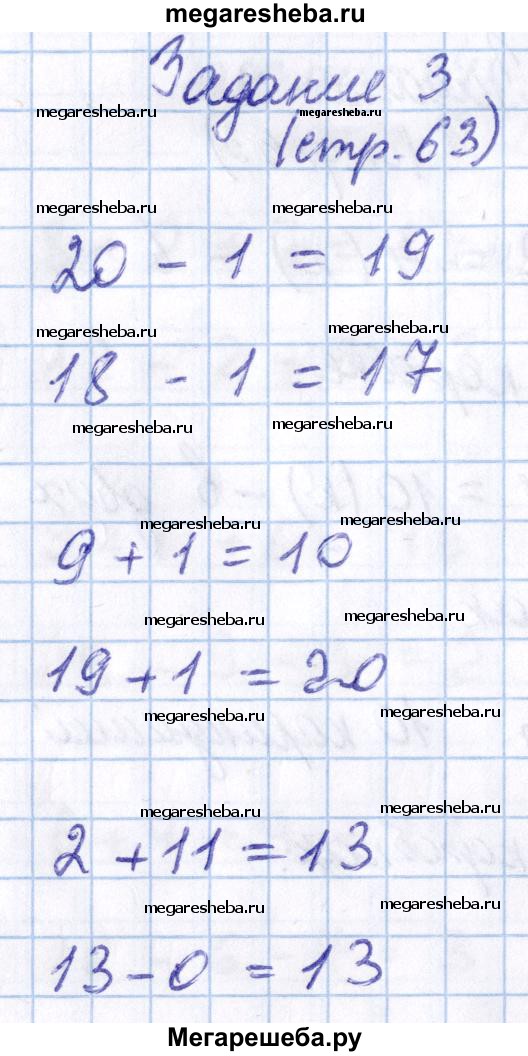 megaresheba.ru
Задание 3
megaresheba.ru megaresheba.ru
(стр. 63)
megaresheba.ru megaresheba.ru
20 - 1 = 19
megaresheba.ru megaresheba.ru
18 - 1 = 17
megaresheba.ru megaresheba.ru
megaresheba.ru megaresheba.ru
9 + 1 = 10
megaresheba.ru megaresheba.ru
19 + 1 = 20
megaresheba.ru megaresheba.ru
megaresheba.ru megaresheba.ru
2 + 11 = 13
megaresheba.ru megaresheba.ru
13 - 0 = 13
Мегарешеба.ру